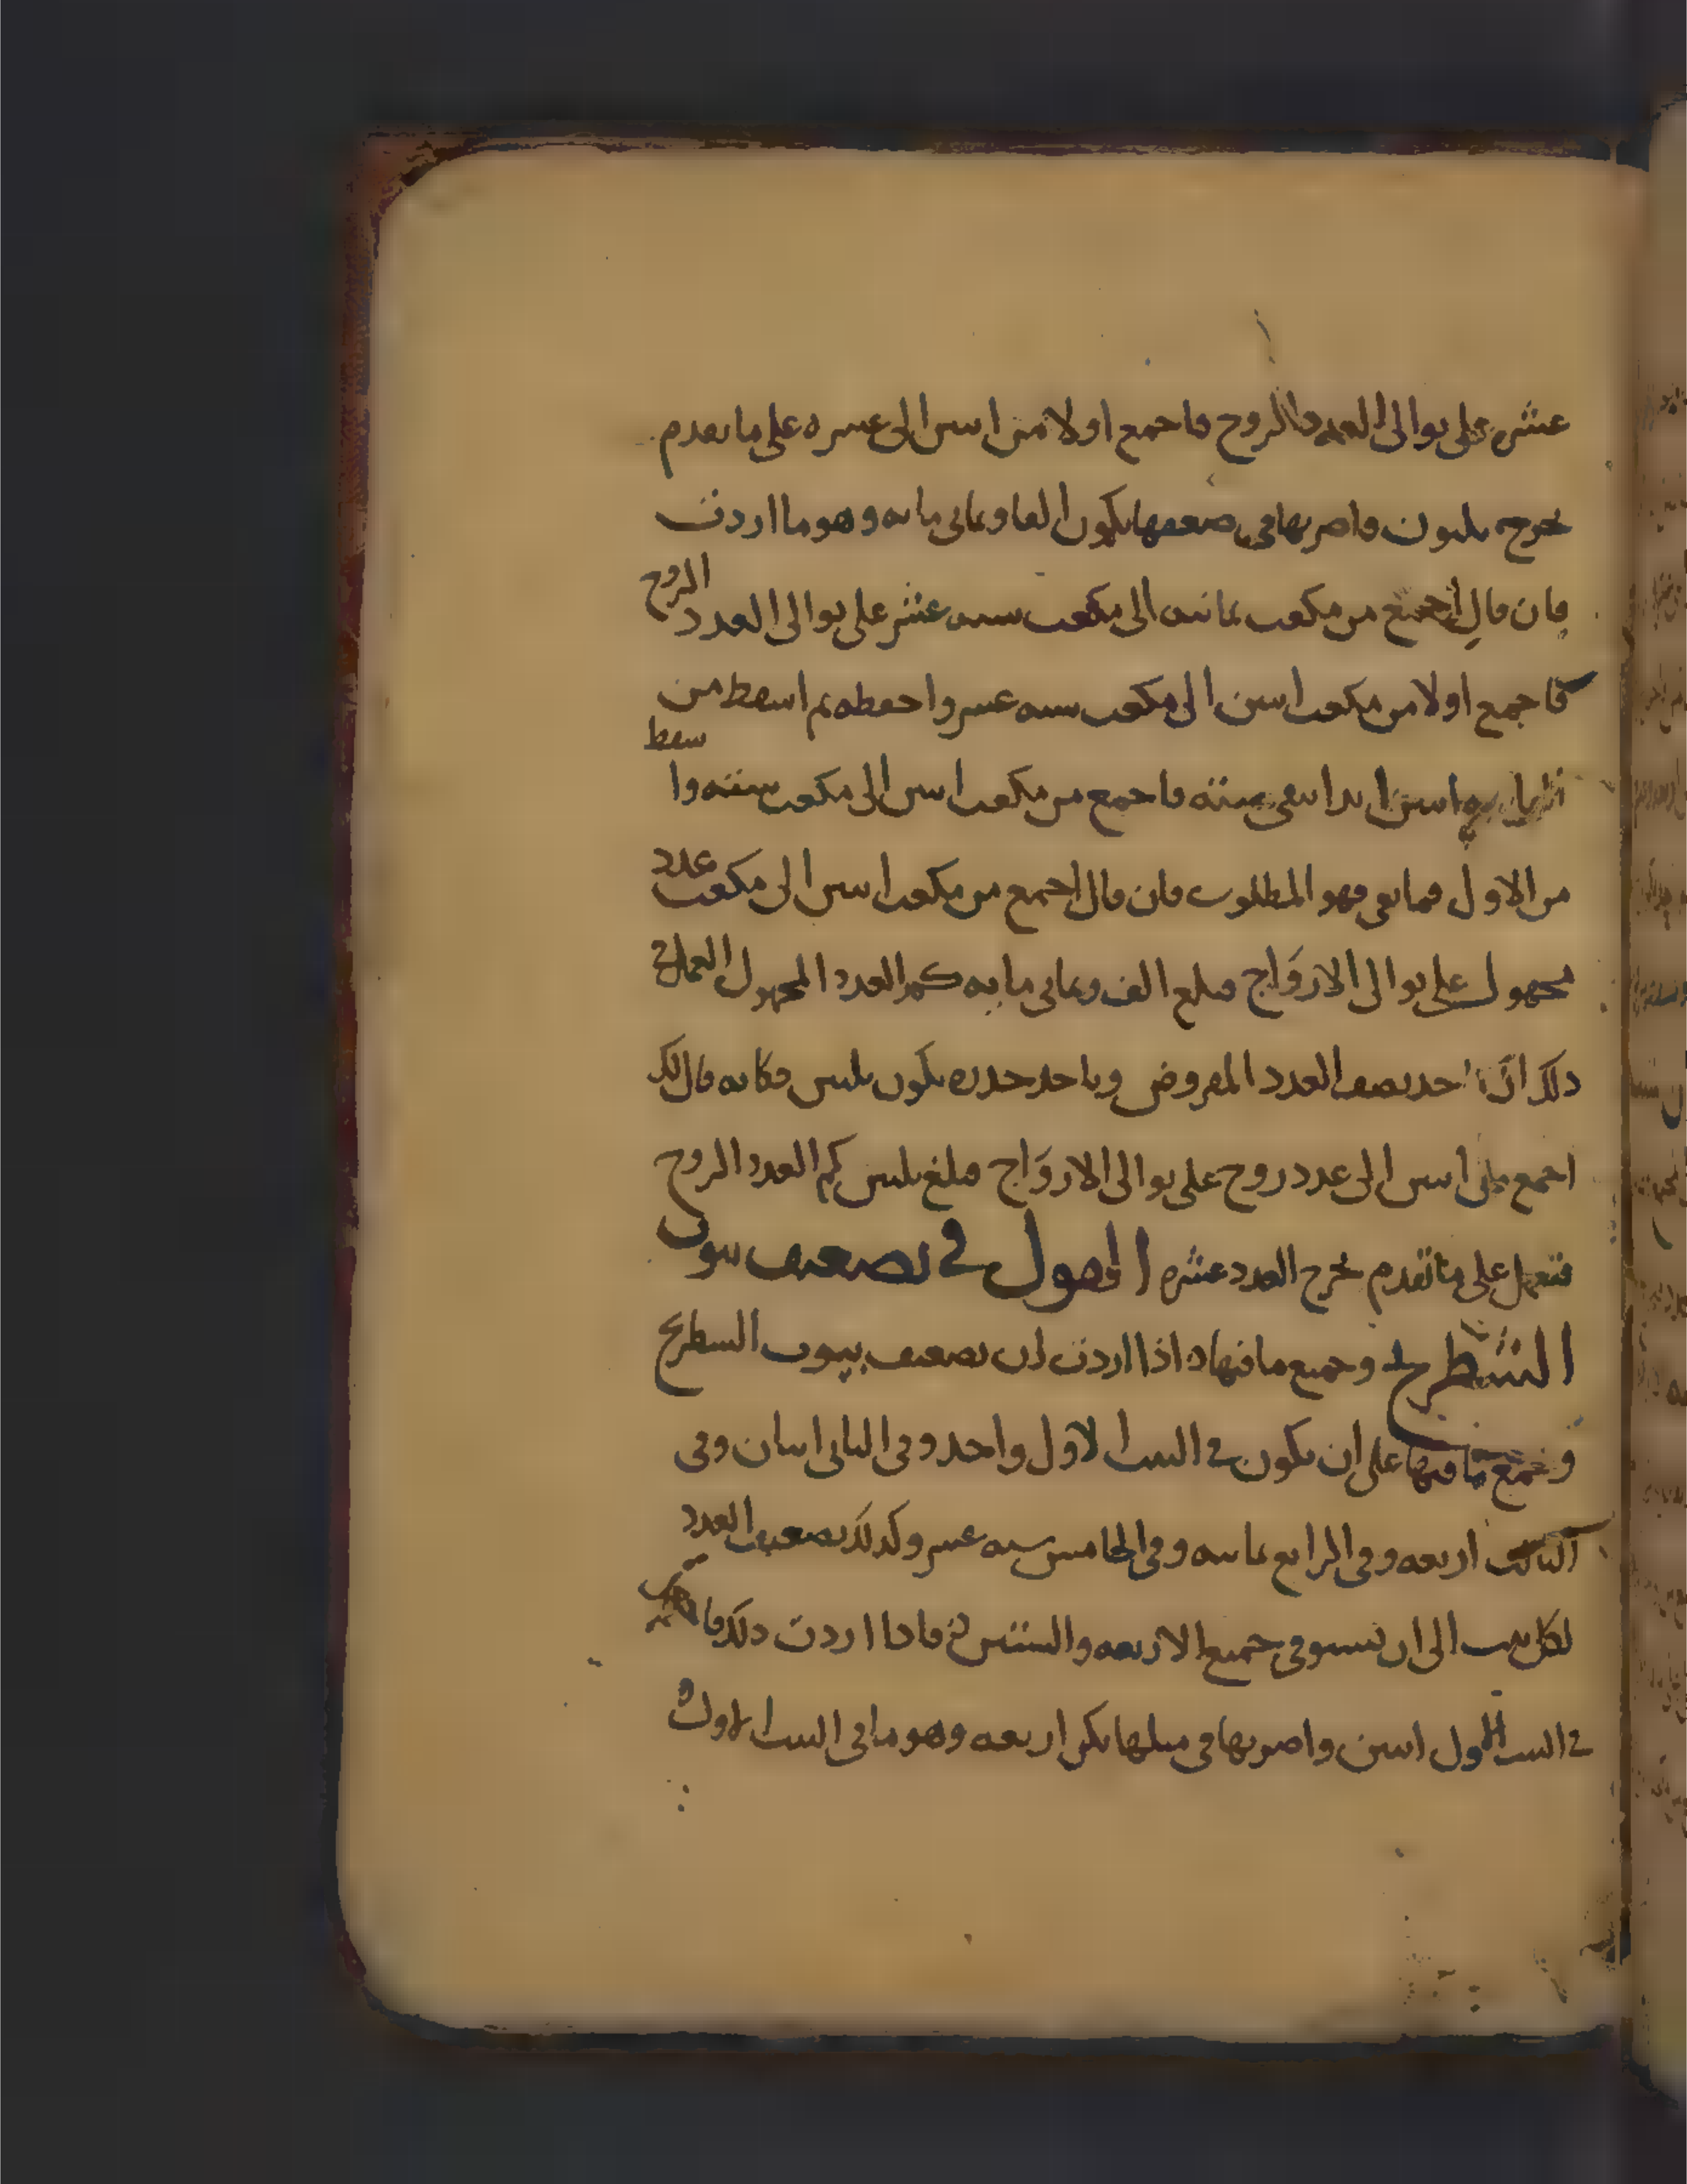 عشره على توالى العدد الزوج فاجمع اولا من اثنين الى عشره على ما تقدم
يخرج ثلثون فاضربها فى ضعفها يكون الفا وثمانى مايه وهو ما اردت
فان قال اجمع من مكعب ثمانيه الى مكعب سته عشر على توالى العدد الزوج
فاجمع اولا من مكعب اثنين الى مكعب سته عشر واحفظه ثم اسقط من
ثمانيه اثنين ابدا يبقى سته فاجمع من مكعب اثنين الى مكعب سته واسقط
من الاول فما بقى فهو المطلوب فان قال اجمع من مكعب اثنين الى مكعب عدد
مجهول على توالى الازواج فبلغ الف وثمانى مايه كم العدد المجهول العمل فى
ذلك ان تاخذ نصف العدد المفروض وتاخذ جذره يكون ثلثين فكانه قال لك
اجمع من اثنين الى عدد زوج على توالى الازواج فبلغ ثلثين كم العدد الزوج
فتعمل على ما تقدم يخرج العدد عشره القول فى تضعيف بيوت
الشطرنج وجميع ما فيها اذا اردت ان تضعيف بيوت الشطرنج
وتجمع ما فيها على ان يكون فى البيت الاول واحد وفى الثانى اثنان وفى
الثالث اربعه وفى الرابع ثمانيه وفى الخامس سته عشر وكذلك تضعيف العدد
لكل بيت الى ان تستوفى جميع الاربعه والستين فاذا اردت ذلك
فى البيت الاول اثنين واضربها فى مثلها يكن اربعه وهو ما فى البيت الاول